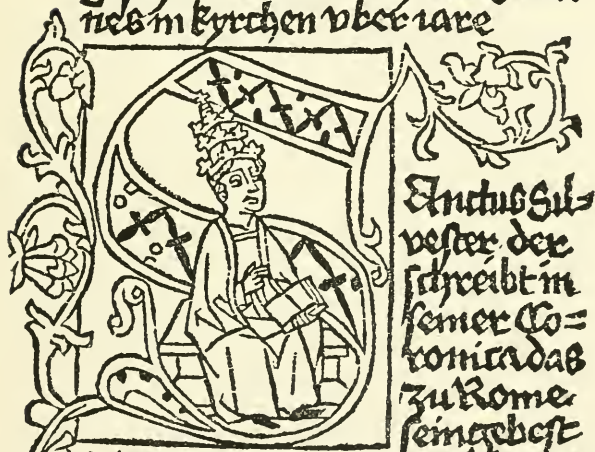 nes in kyrchen vber iare
Anctus Sil=
vester der
schreibt in
seiner Co=
ronica das
zu Rome
sein gebest